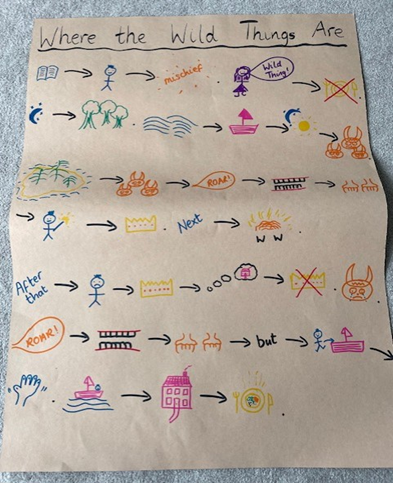 Where the Wild Things Are
mischief
Wild Thing!
ROAR!
Next
After that
ROAR!
but